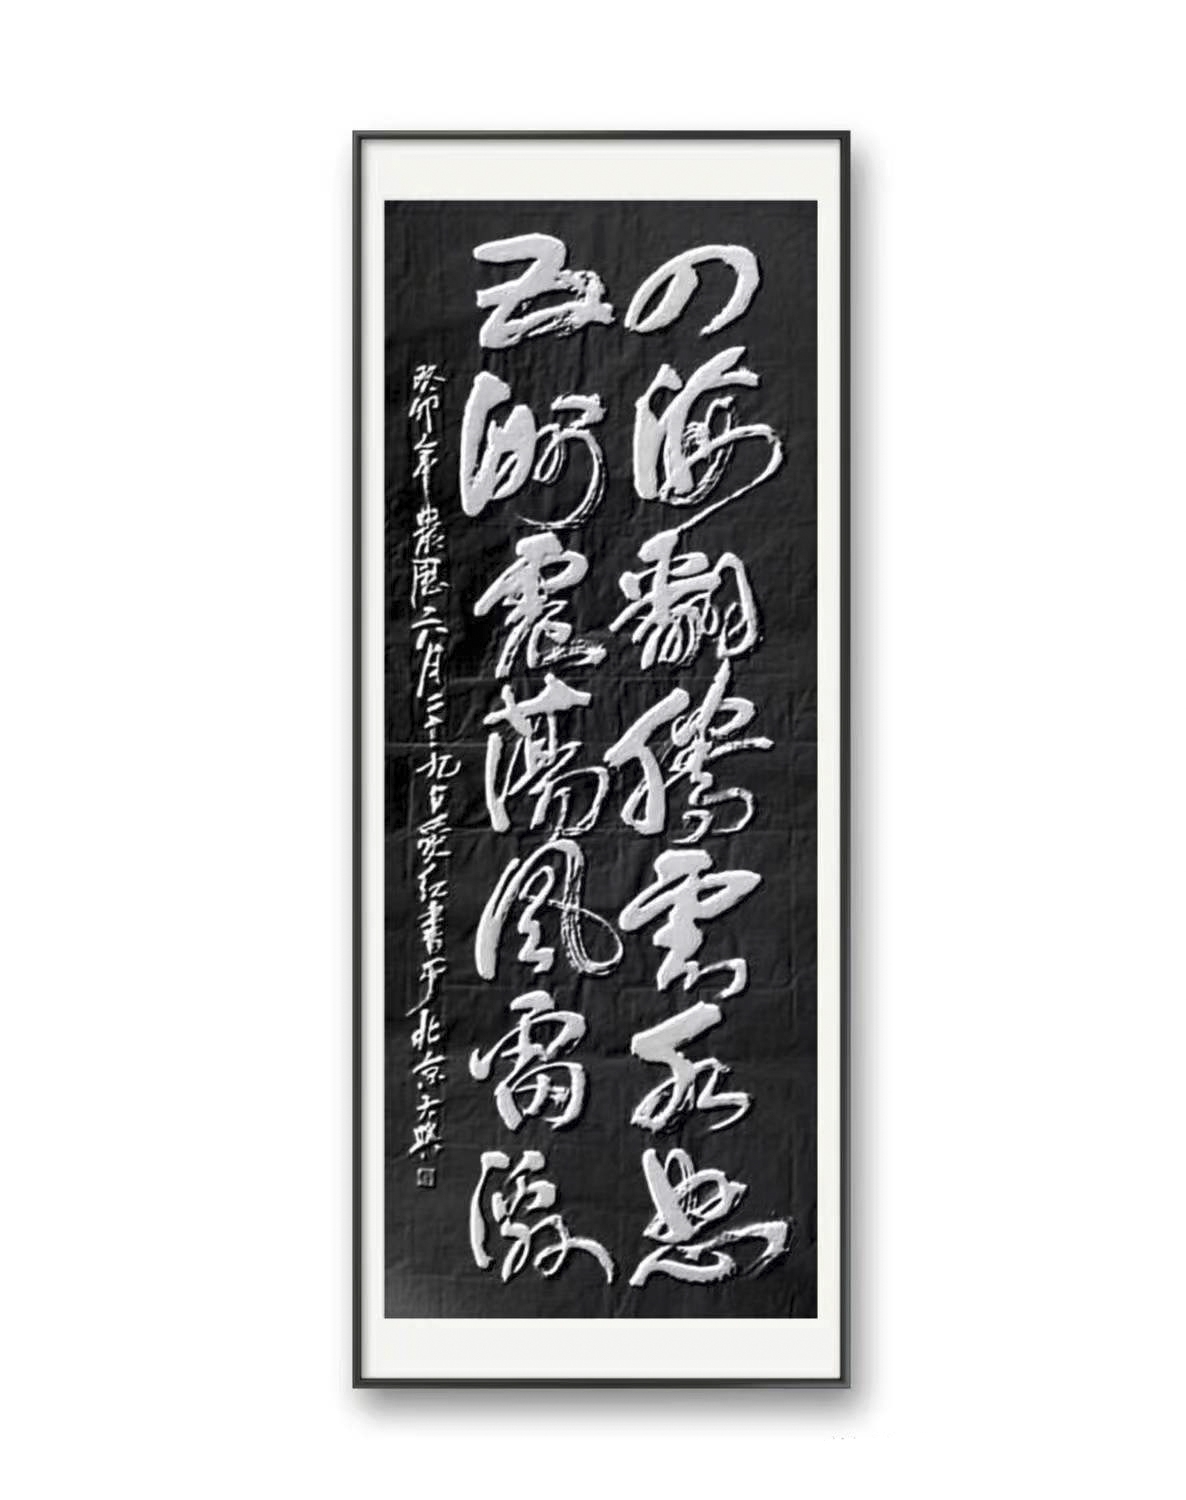 四海翻腾雲水怒
五洲震荡風雷激
癸卯年農历六月二十九日爱红書于北京大興